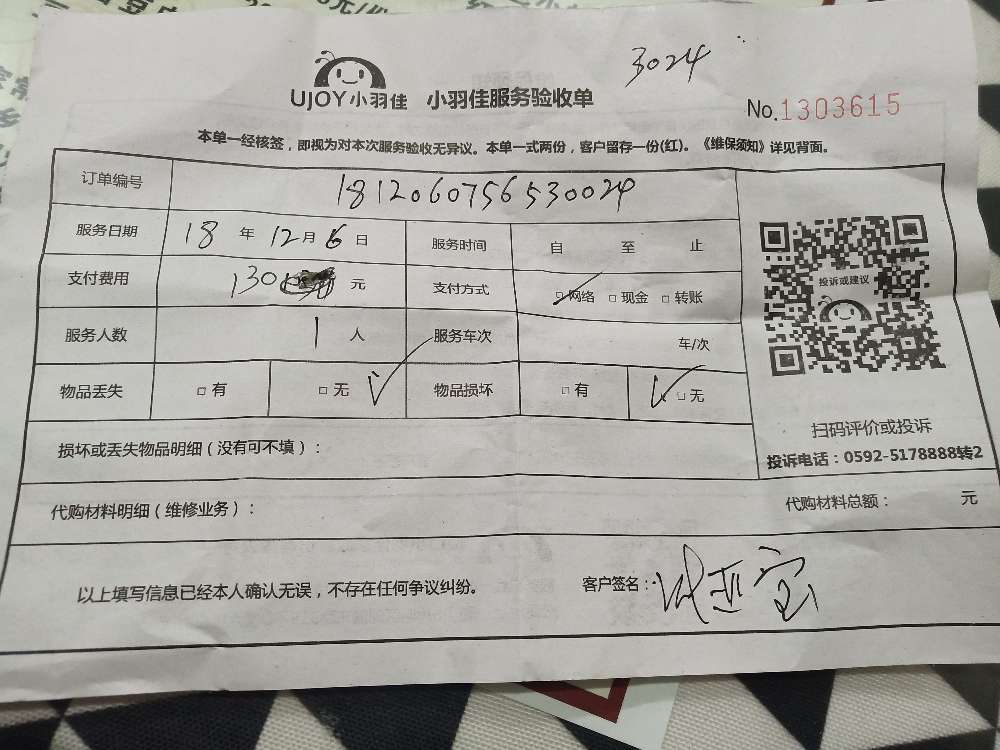 3024
UJOY小羽佳 小羽佳服务验收单
No.1303615
本单一经核签，即视为对本次服务验收无异议。本单一式两份，客户留存一份(红)。《维保须知》详见背面。
订单编号 1812060756530024
服务日期 18 年 12 月 6 日 服务时间 自 至 止
支付费用 130 元 支付方式 □网络 □现金 □转账
投诉或建议
服务人数 1 人 服务车次 车/次
物品丢失 □有 □无 ✓ 物品损坏 □有 ✓ □无
扫码评价或投诉
投诉电话：0592-5178888转2
损坏或丢失物品明细（没有可不填）：
代购材料明细（维修业务）： 代购材料总额： 元
以上填写信息已经本人确认无误，不存在任何争议纠纷。 客户签名：